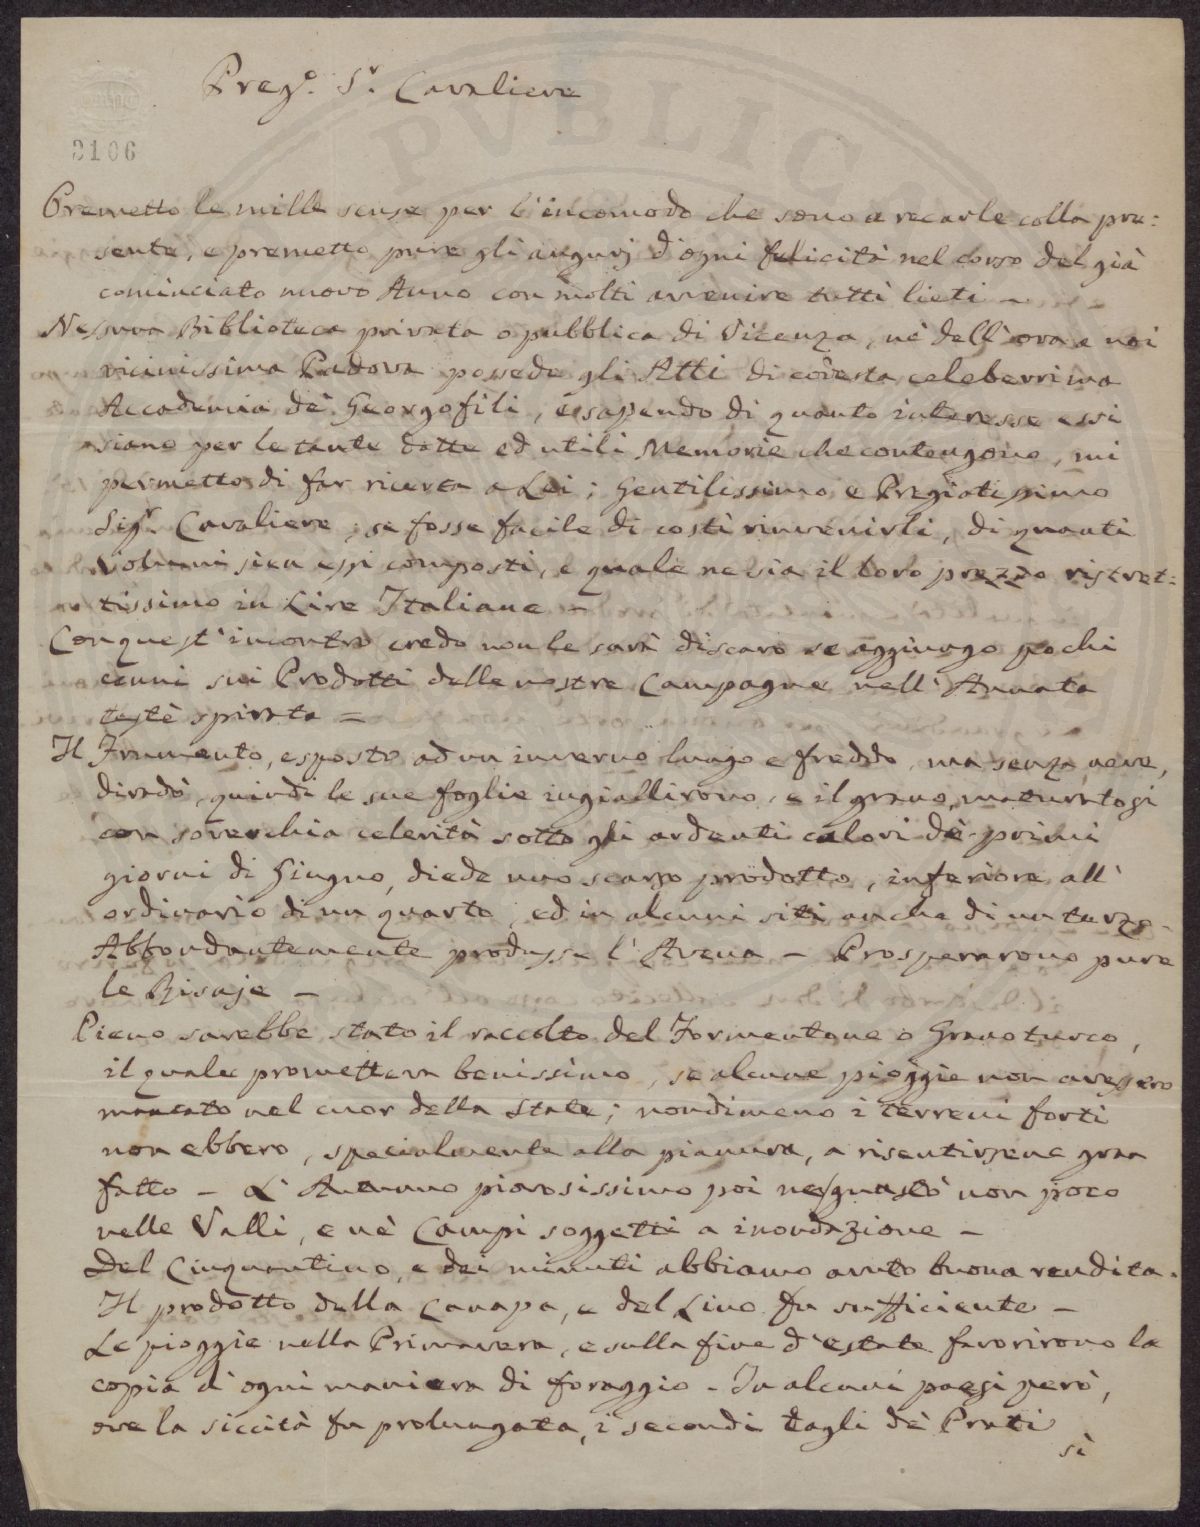 Preg.º S.r Cavaliere
3106
Premetto le mille scuse per l'incomodo che sono a recarle colla pre:
sente, e premetto pure gli augurj d'ogni felicità nel corso del già
cominciato nuovo Anno con molti avvenire tutti lieti –
Nessuna Biblioteca privata o pubblica di Vicenza, nè dell'ora a noi
vicinissima Padova possede gli Atti di codesta celeberrima
Accademia de' Georgofili, e sapendo di quanto interesse essi
siano per le tante dotte ed utili Memorie che contengono, mi
permetto di far ricerca a Lei, Gentilissimo e Pregiatissimo
Sig.r Cavaliere, se fosse facile di costì rinvenirli, di quanti
volumi sien essi composti, e quale ne sia il loro prezzo ristret:
tissimo in Lire Italiane –
Con quest'incontro credo non le sarà discaro se aggiungo pochi
cenni sui Prodotti delle nostre Campagne nell'Annata
testè spirata =
Il Frumento, esposto ad un inverno lungo e freddo, ma senza neve,
diradò, quindi le sue foglie ingiallirono, e il grano, maturatosi
con soverchia celerità sotto gli ardenti calori de' primi
giorni di Giugno, diede uno scarso prodotto, inferiore all'
ordinario di un quarto, ed in alcuni siti anche di un terzo –
Abbondantemente produsse l'Avena – Prosperarono pure
le Risaje –
Pieno sarebbe stato il raccolto del Formentone o Grano turco,
il quale prometteva benissimo, se alcune pioggie non avessero
mancato nel cuor della State; nondimeno i terreni forti
non ebbero, specialmente alla pianura, a risentirsene gran
fatto – L'Autunno piovosissimo poi ne guastò non poco
nelle Valli, e nè Campi soggetti a inondazione –
Del Cinquantino, e dei minuti abbiamo avuto buona rendita.
Il prodotto della Canapa, e del Lino fu sufficiente –
Le pioggie nella Primavera, e sulla fine d'estate favorirono la
copia d'ogni maniera di foraggio – In alcuni paesi però,
ove la siccità fu prolungata, i secondi tagli de' Prati
si
PVBLIC